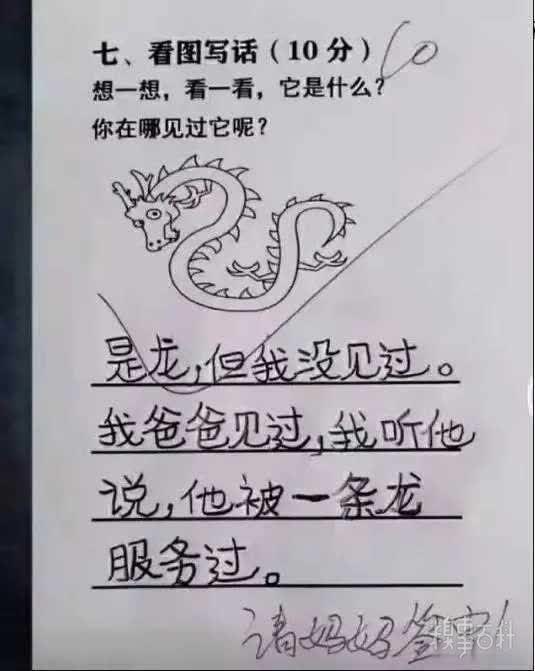 七、看图写话（10 分）
10
想一想，看一看，它是什么？
你在哪见过它呢？
是龙，但我没见过。
我爸爸见过，我听他
说，他被一条龙
服务过。
请妈妈签字！
糗事百科